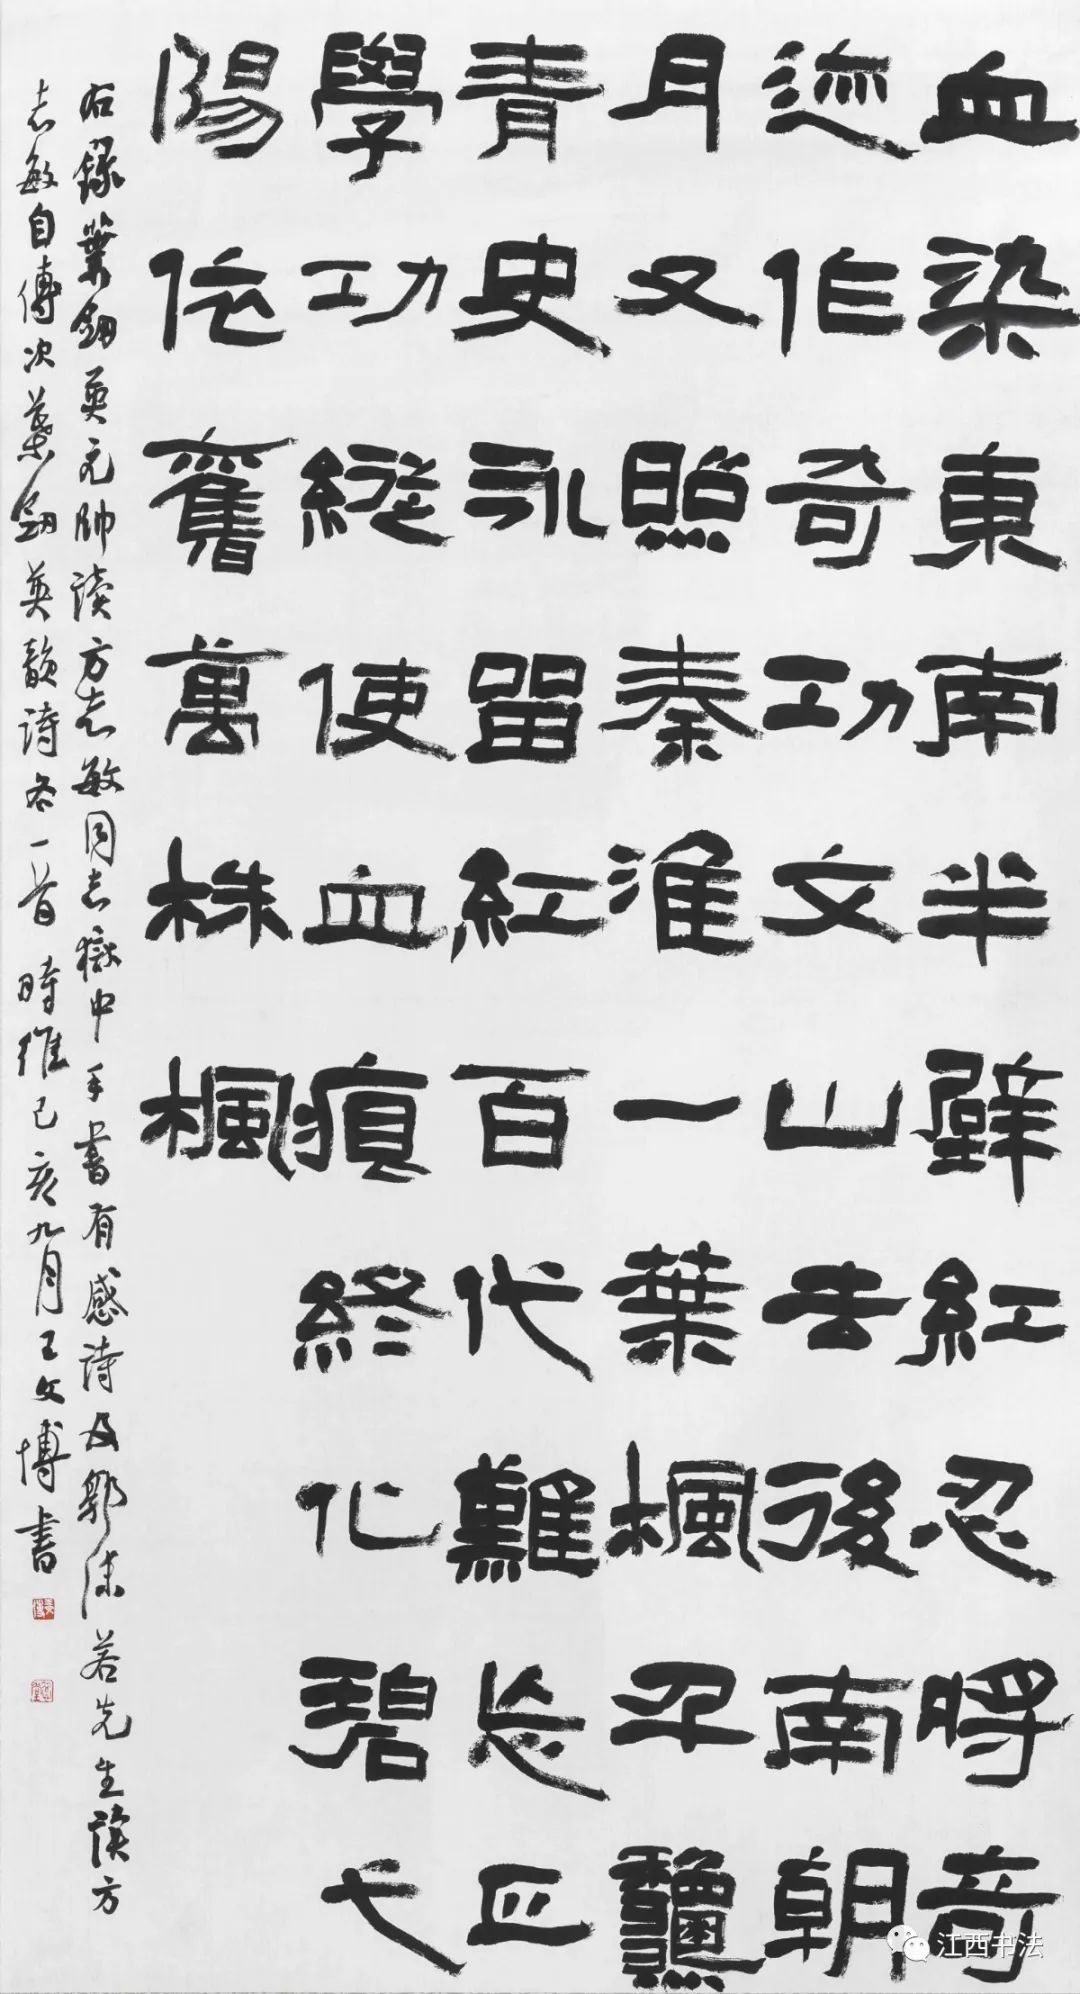 血染東南半壁紅忍將奇
迹作奇功文山去後南朝
月又照秦淮一葉楓千龝
青史永留紅百代難忘正
學功縱使血痕終化碧弋
陽依舊萬株楓
右錄葉劍英元帥讀方志敏同志獄中手書有感詩及郭沫若先生讀方
志敏自傳次葉劍英韻詩各一首 時維己亥九月王文博書
江西书法